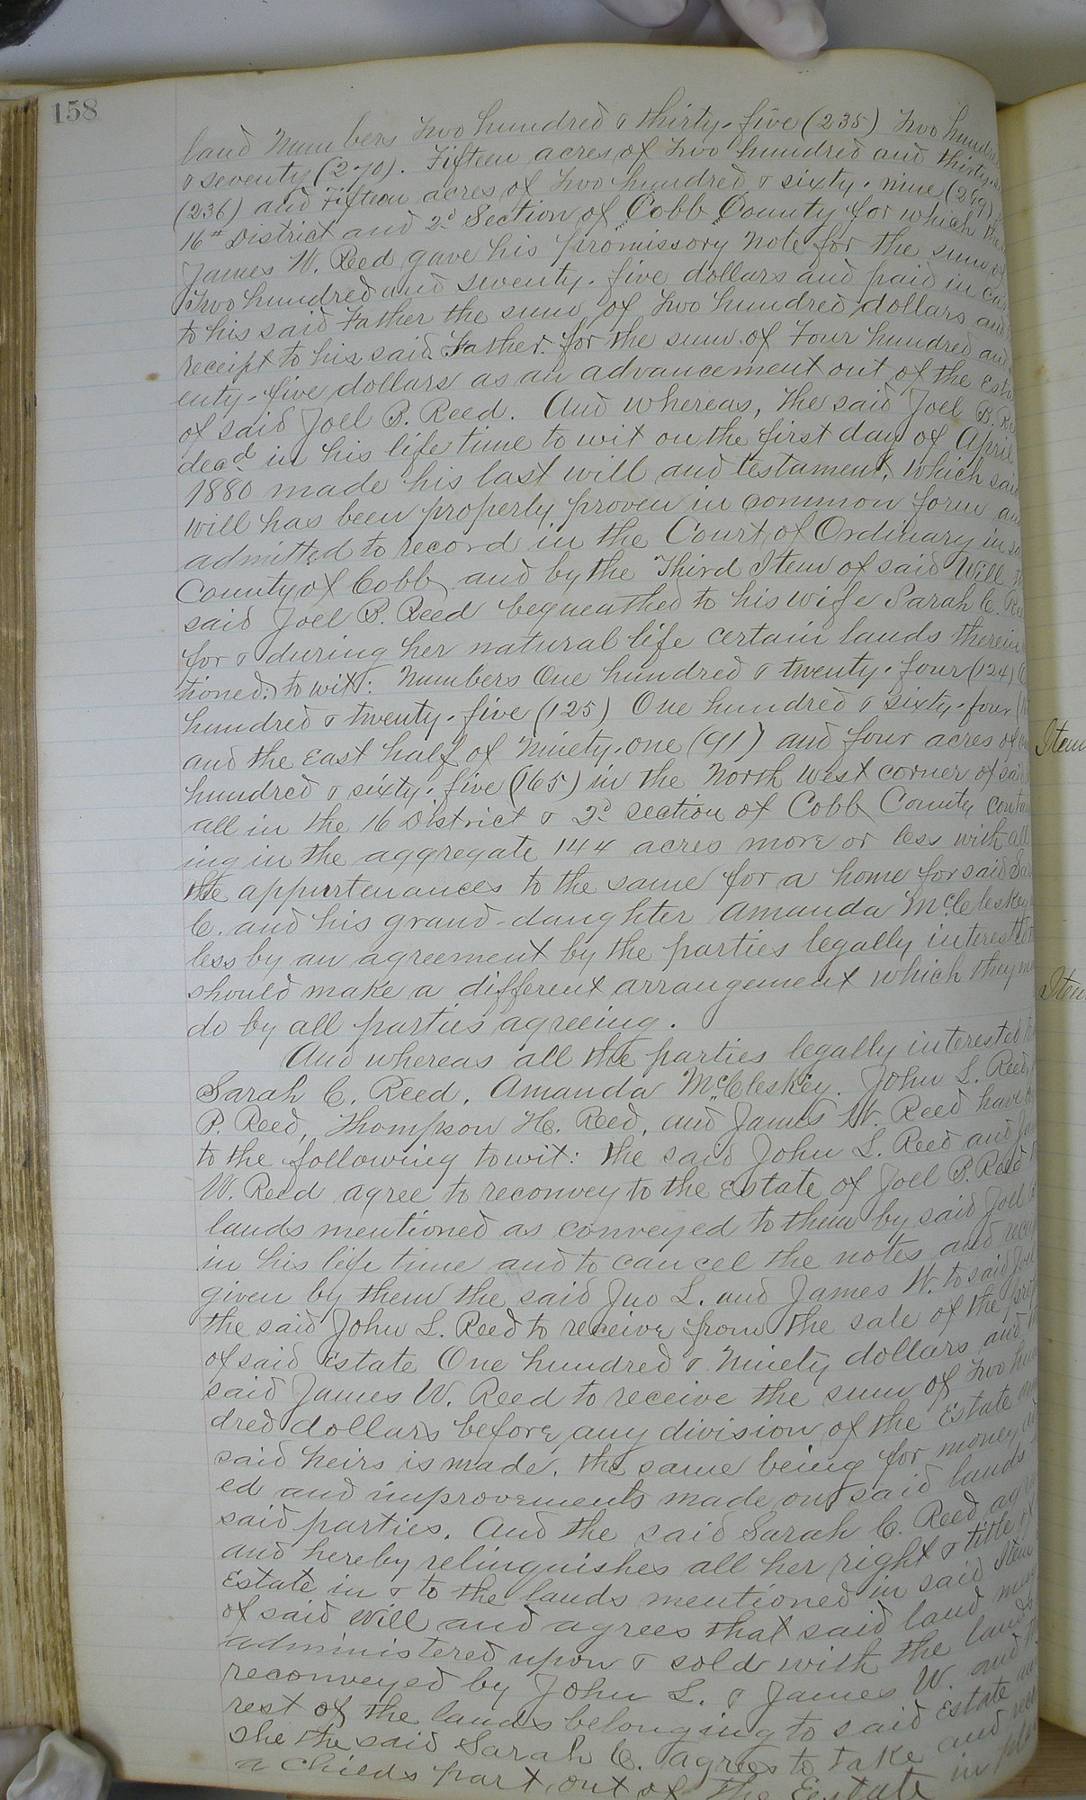 158
land Numbers Two hundred & thirty-five (235) Two hund
& seventy (270). Fifteen acres of Two hundred and thirty-
(236) and Fifteen acres of Two hundred & sixty-nine (269)
16th District and 2d Section of Cobb County for which the
James W. Reed gave his promissory note for the sum of
Two hundred and seventy-five dollars and paid in
to his said Father the sum of Two hundred dollars and
receipt to his said Father for the sum of Four hundred and
enty-five dollars as an advancement out of the Est
of said Joel P. Reed. And whereas, the said Joel P. Re
decd in his life time to wit on the first day of April
1880 made his last will and testament, which said
will has been properly proven in common form an
admitted to record in the Court of Ordinary in
County of Cobb and by the Third Item of said Will
said Joel P. Reed bequeathed to his wife Sarah C. Re
for & during her natural life certain lands therein
tioned. to wit: Numbers One hundred & twenty-four (124)
hundred & twenty-five (125) One hundred & sixty-four
and the East half of Ninety-one (91) and four acres of
hundred & sixty-five (165) in the North West corner of said
all in the 16 District & 2d section of Cobb County cont
ing in the aggregate 144 acres more or less with all
the appurtenances to the same for a home for said Sa
C. and his grand-daughter Amanda McCleskey
less by an agreement by the parties legally interested
should make a different arrangement which they m
do by all parties agreeing.
And whereas all the parties legally interested
Sarah C. Reed, Amanda McCleskey. John L. Reed,
P. Reed, Thompson H. Reed, and James W. Reed have
to the following to wit: the said John L. Reed and
W. Reed agree to reconvey to the Estate of Joel P. Reed
lands mentioned as conveyed to them by said Joel
in his life time and to cancel the notes and
given by them the said Jno L. and James W. to said
the said John L. Reed to receive from the sale of the
of said Estate One hundred & Ninety dollars and
said James W. Reed to receive the sum of Two hun
dred dollars before any division of the Estate
said heirs is made, the same being for money
ed and improvements made on said lands
said parties. And the said Sarah C. Reed
and hereby relinquishes all her right & title
Estate in & to the lands mentioned in said Item
of said will and agrees that said land
administered upon & sold with the lands
reconveyed by John L. & James W. and
rest of the lands belonging to said Estate
she the said Sarah C. agrees to take and
a childs part out of the Estate in
Item
Item